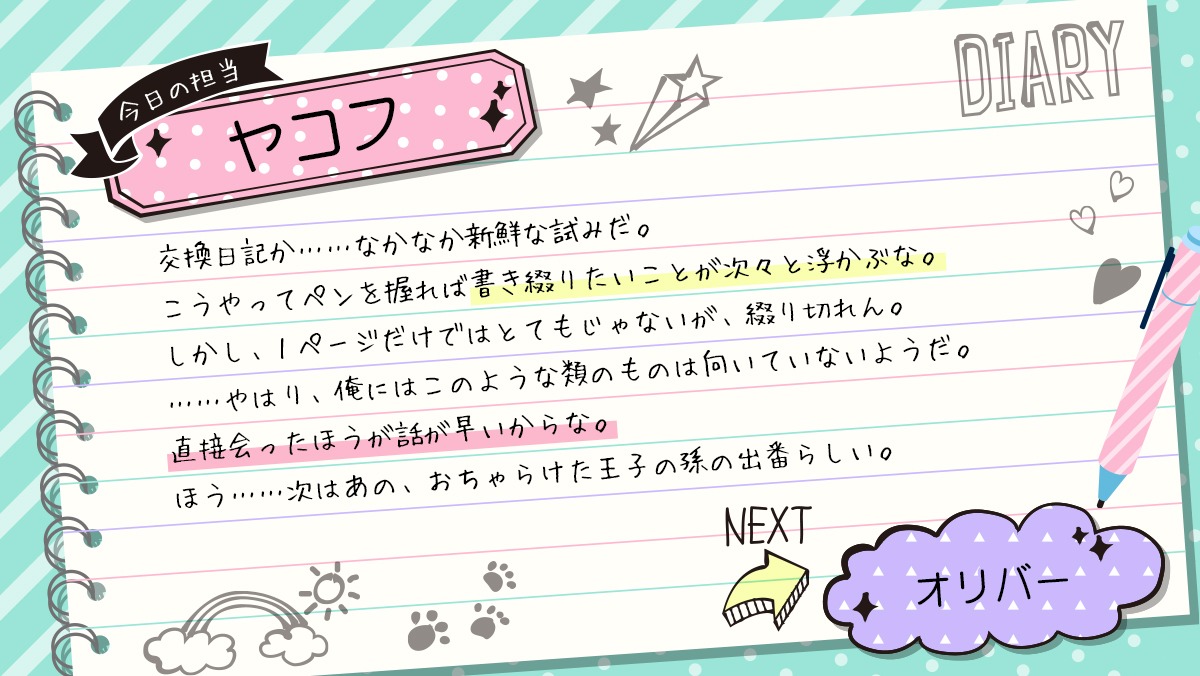 今日の担当
ヤコフ
DIARY
交換日記か……なかなか新鮮な試みだ。
こうやってペンを握れば書き綴りたいことが次々と浮かぶな。
しかし、1ページだけではとてもじゃないが、綴り切れん。
……やはり、俺にはこのような類のものは向いていないようだ。
直接会ったほうが話が早いからな。
ほう……次はあの、おちゃらけた王子の孫の出番らしい。
NEXT
オリバー